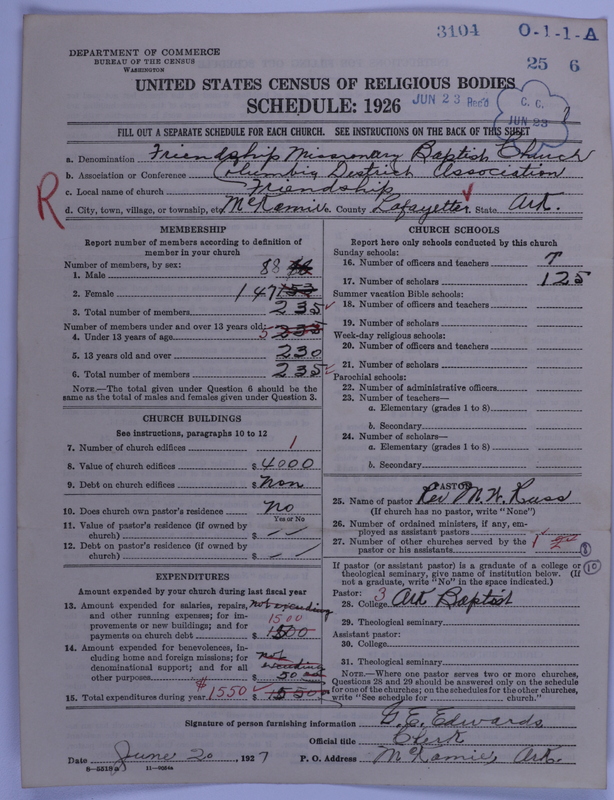 3104 O-1-1-A
25 6
DEPARTMENT OF COMMERCE
BUREAU OF THE CENSUS
WASHINGTON
UNITED STATES CENSUS OF RELIGIOUS BODIES
SCHEDULE: 1926
JUN 23 Rec'd
C. C.
JUN 23
FILL OUT A SEPARATE SCHEDULE FOR EACH CHURCH. SEE INSTRUCTIONS ON THE BACK OF THIS SHEET
R
a. Denomination Friendship Missionary Baptist Church
b. Association or Conference Columbia Destrict Association
c. Local name of church Friendship
d. City, town, village, or township, etc. McKamie. County Lafayette. State Ark.
MEMBERSHIP
Report number of members according to definition of
member in your church
Number of members, by sex:
1. Male 88
2. Female 147 153
3. Total number of members 235
Number of members under and over 13 years old:
4. Under 13 years of age 5 235
5. 13 years old and over 230
6. Total number of members 235
NOTE.—The total given under Question 6 should be
same as the total of males and females given under Question 3.
CHURCH BUILDINGS
See instructions, paragraphs 10 to 12
7. Number of church edifices 1
8. Value of church edifices $ 4000
9. Debt on church edifices $ Non
10. Does church own pastor's residence No
Yes or No
11. Value of pastor's residence (if owned by
church) $ - -
12. Debt on pastor's residence (if owned by
church) $ - -
EXPENDITURES
Amount expended by your church during last fiscal year
13. Amount expended for salaries, repairs,
and other running expenses; for im-
provements or new buildings; and for
payments on church debt $ 1500
1500
14. Amount expended for benevolences, in-
cluding home and foreign missions; for
denominational support; and for all
other purposes $ 50
15. Total expenditures during year $1550 $ 1550
CHURCH SCHOOLS
Report here only schools conducted by this church
Sunday schools:
16. Number of officers and teachers 7
17. Number of scholars 125
Summer vacation Bible schools:
18. Number of officers and teachers
19. Number of scholars
Week-day religious schools:
20. Number of officers and teachers
21. Number of scholars
Parochial schools:
22. Number of administrative officers
23. Number of teachers—
a. Elementary (grades 1 to 8)
b. Secondary
24. Number of scholars—
a. Elementary (grades 1 to 8)
b. Secondary
PASTOR
25. Name of pastor Rev M. W. Russ
(If church has no pastor, write "None")
26. Number of ordained ministers, if any, em-
ployed as assistant pastors
27. Number of other churches served by the
pastor or his assistants 1
8
If pastor (or assistant pastor) is a graduate of a college or
theological seminary, give name of institution below. (If
not a graduate, write "No" in the space indicated.)
10
Pastor: 3
28. College Ark Baptist
29. Theological seminary
Assistant pastor:
30. College
31. Theological seminary
NOTE.—Where one pastor serves two or more churches,
Questions 28 and 29 should be answered only on the schedule
for one of the churches; on the schedules for the other churches,
write "See schedule for church."
Signature of person furnishing information G. E. Edwards
Official title Clerk
Date June 20, 1927 P. O. Address McKamie Ark.